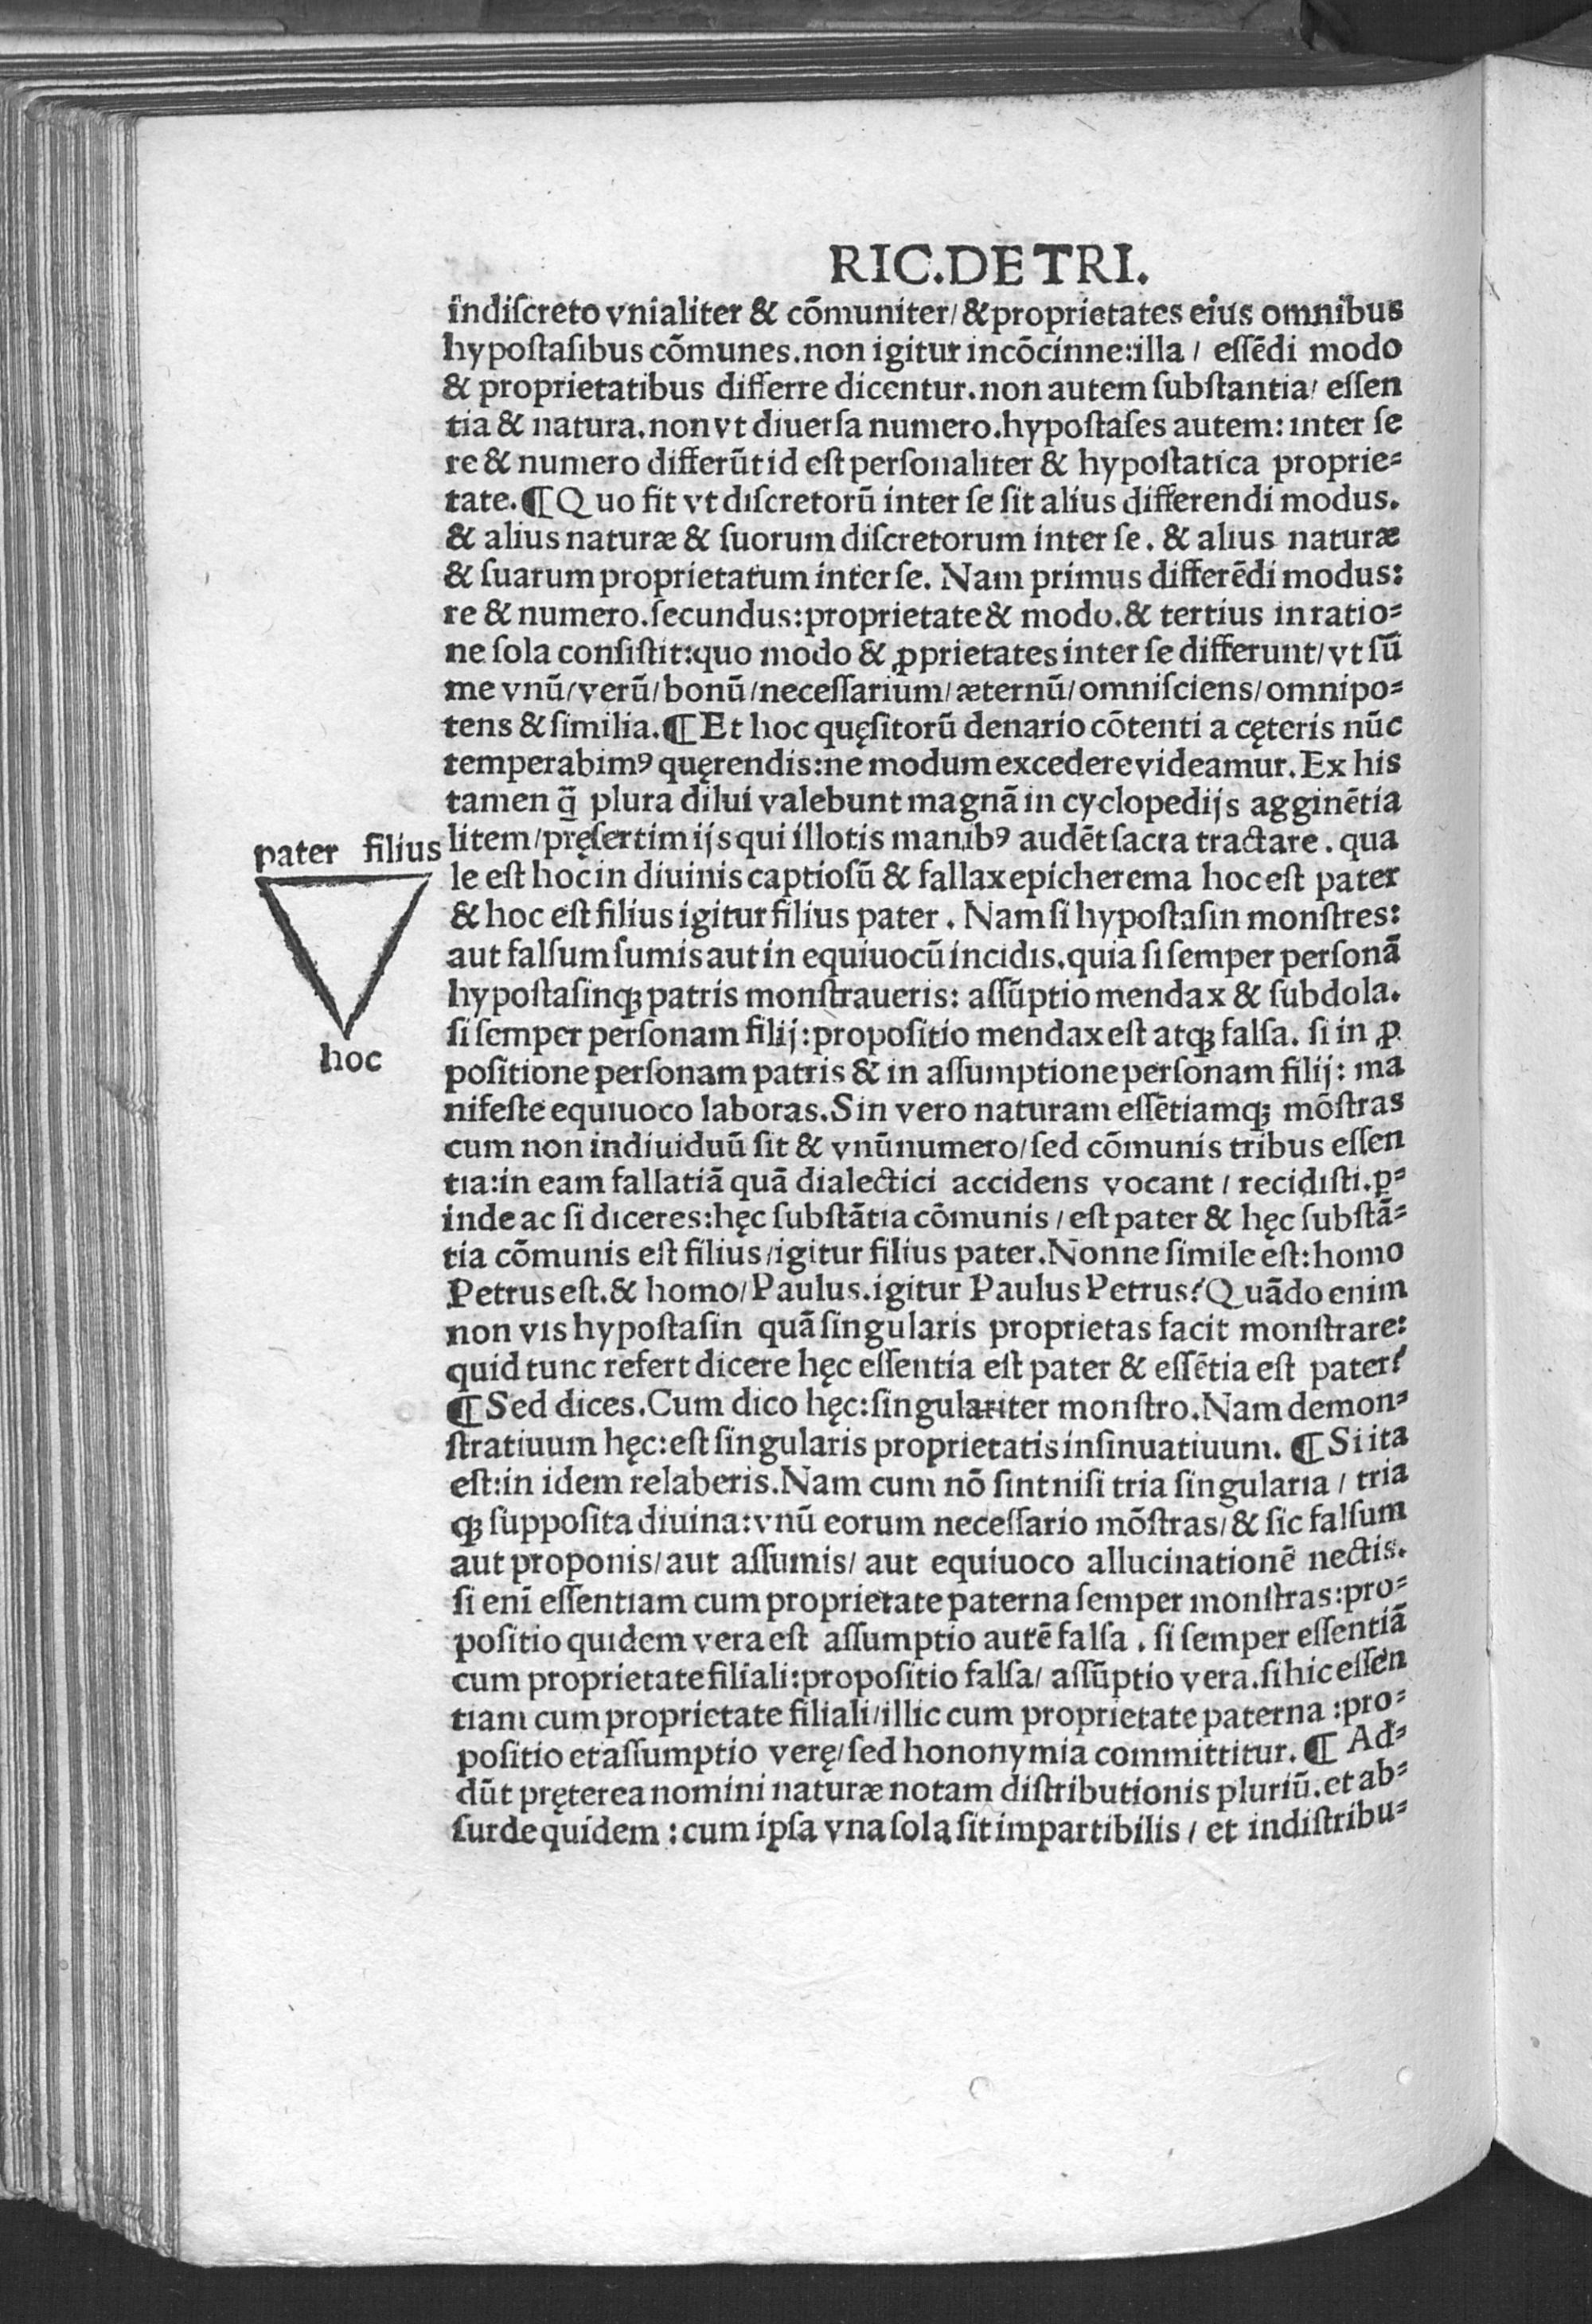 RIC.DE TRI.
indiſcreto vnialiter & cõmuniter/ & proprietates eius omnibus
hypoſtaſibus cõmunes. non igitur incõcinne: illa / eſſẽdi modo
& proprietatibus differre dicentur. non autem ſubſtantia/ eſſen
tia & natura. non vt diuerſa numero. hypoſtaſes autem: inter ſe
re & numero differũt id eſt perſonaliter & hypoſtatica proprie⸗
tate. ¶ Quo fit vt diſcretorũ inter ſe ſit alius differendi modus.
& alius naturæ & ſuorum diſcretorum inter ſe. & alius naturæ
& ſuarum proprietatum inter ſe. Nam primus differẽdi modus:
re & numero. ſecundus: proprietate & modo. & tertius in ratio⸗
ne ſola conſiſtit: quo modo & ꝓprietates inter ſe differunt/ vt ſũ
me vnũ/ verũ/ bonũ/ neceſſarium/ æternũ/ omniſciens/ omnipo⸗
tens & ſimilia. ¶ Et hoc quęſitorũ denario cõtenti a cęteris nũc
temperabimꝰ quęrendis: ne modum excedere videamur. Ex his
tamen q̃ plura dilui valebunt magnã in cyclopedijs agginẽtia
litem/ pręſertim ijs qui illotis manibꝰ audẽt ſacra tractare. qua
le eſt hoc in diuinis captioſũ & fallax epicherema hoc eſt pater
& hoc eſt filius igitur filius pater. Nam ſi hypoſtaſin monſtres:
aut falſum ſumis aut in equiuocũ incidis. quia ſi ſemper perſonã
hypoſtaſinqꝫ patris monſtraueris: aſſũptio mendax & ſubdola.
ſi ſemper perſonam filij: propoſitio mendax eſt atqꝫ falſa. ſi in ꝓ
poſitione perſonam patris & in aſſumptione perſonam filij: ma
nifeſte equiuoco laboras. Sin vero naturam eſſẽtiamqꝫ mõſtras
cum non indiuiduũ ſit & vnũ numero/ ſed cõmunis tribus eſſen
tia: in eam fallatiã quã dialectici accidens vocant / recidiſti. ꝓ⸗
inde ac ſi diceres: hęc ſubſtãtia cõmunis / eſt pater & hęc ſubſtã⸗
tia cõmunis eſt filius/ igitur filius pater. Nonne ſimile eſt: homo
Petrus eſt. & homo/ Paulus. igitur Paulus Petrus? Quãdo enim
non vis hypoſtaſin quã ſingularis proprietas facit monſtrare:
quid tunc refert dicere hęc eſſentia eſt pater & eſſẽtia eſt pater?
¶ Sed dices. Cum dico hęc: ſingulariter monſtro. Nam demon⸗
ſtratiuum hęc: eſt ſingularis proprietatis inſinuatiuum. ¶ Si ita
eſt: in idem relaberis. Nam cum nõ ſint niſi tria ſingularia / tria
qꝫ ſuppoſita diuina: vnũ eorum neceſſario mõſtras/ & ſic falſum
aut proponis/ aut aſſumis/ aut equiuoco allucinationẽ nectis.
ſi enĩ eſſentiam cum proprietate paterna ſemper monſtras: pro⸗
poſitio quidem vera eſt aſſumptio autẽ falſa. ſi ſemper eſſentiã
cum proprietate filiali: propoſitio falſa/ aſſũptio vera. ſi hic eſſen
tiam cum proprietate filiali/ illic cum proprietate paterna: pro⸗
poſitio et aſſumptio verę/ ſed hononymia committitur. ¶ Ad⸗
dũt pręterea nomini naturæ notam diſtributionis pluriũ. et ab⸗
ſurde quidem: cum ipſa vna ſola ſit impartibilis / et indiſtribu⸗
pater filius
hoc